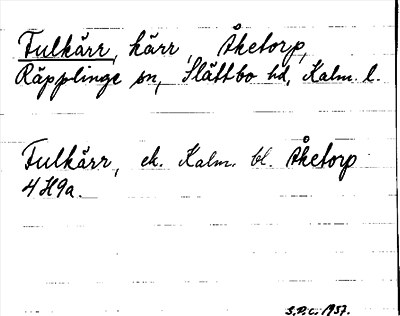 Fulkärr, kärr, Åketorp,
Räpplinge sn, Slättbo hd, Kalm. l.
Fulkärr, ek. Kalm. bl. Åketorp
4H9a.
S.D.C. 1937.